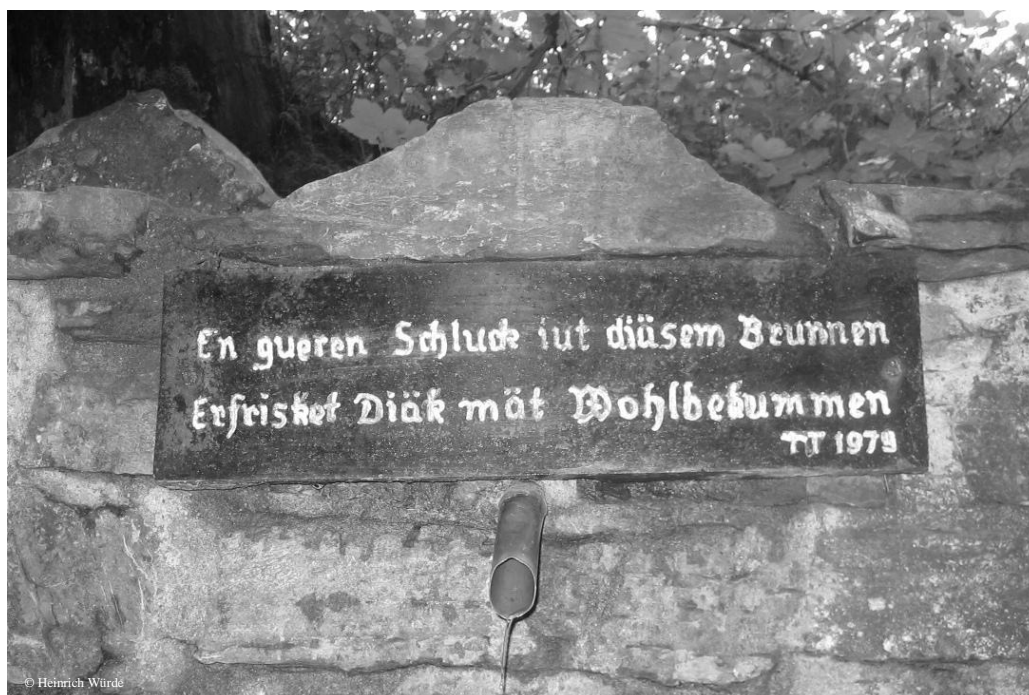 En gueren Schluck iut düüsem Brunnen
Erfrisket Diäk mät Wohlbekummen
TT 1979
© Heinrich Würde